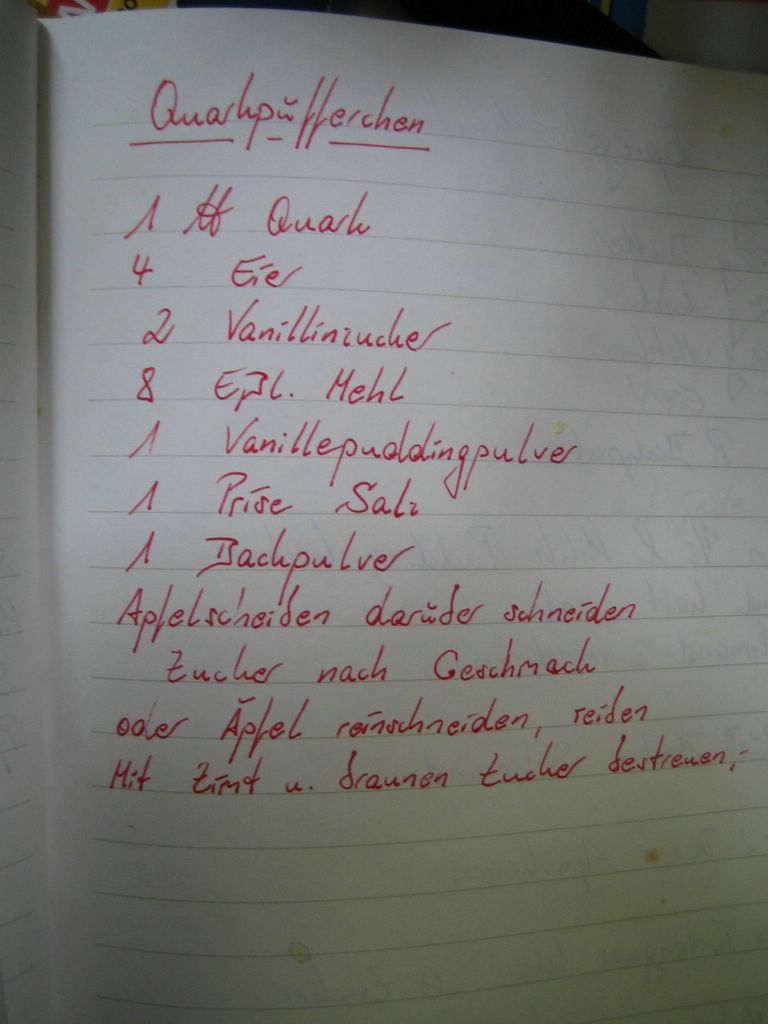 Quarkpüfferchen
1 ℔ Quark
4 Eier
2 Vanillinzucker
8 Eßl. Mehl
1 Vanillepuddingpulver
1 Prise Salz
1 Backpulver
Apfelscheiben darüber schneiden
Zucker nach Geschmack
oder Äpfel reinschneiden, reiben
Mit Zimt u. braunen Zucker bestreuen,-